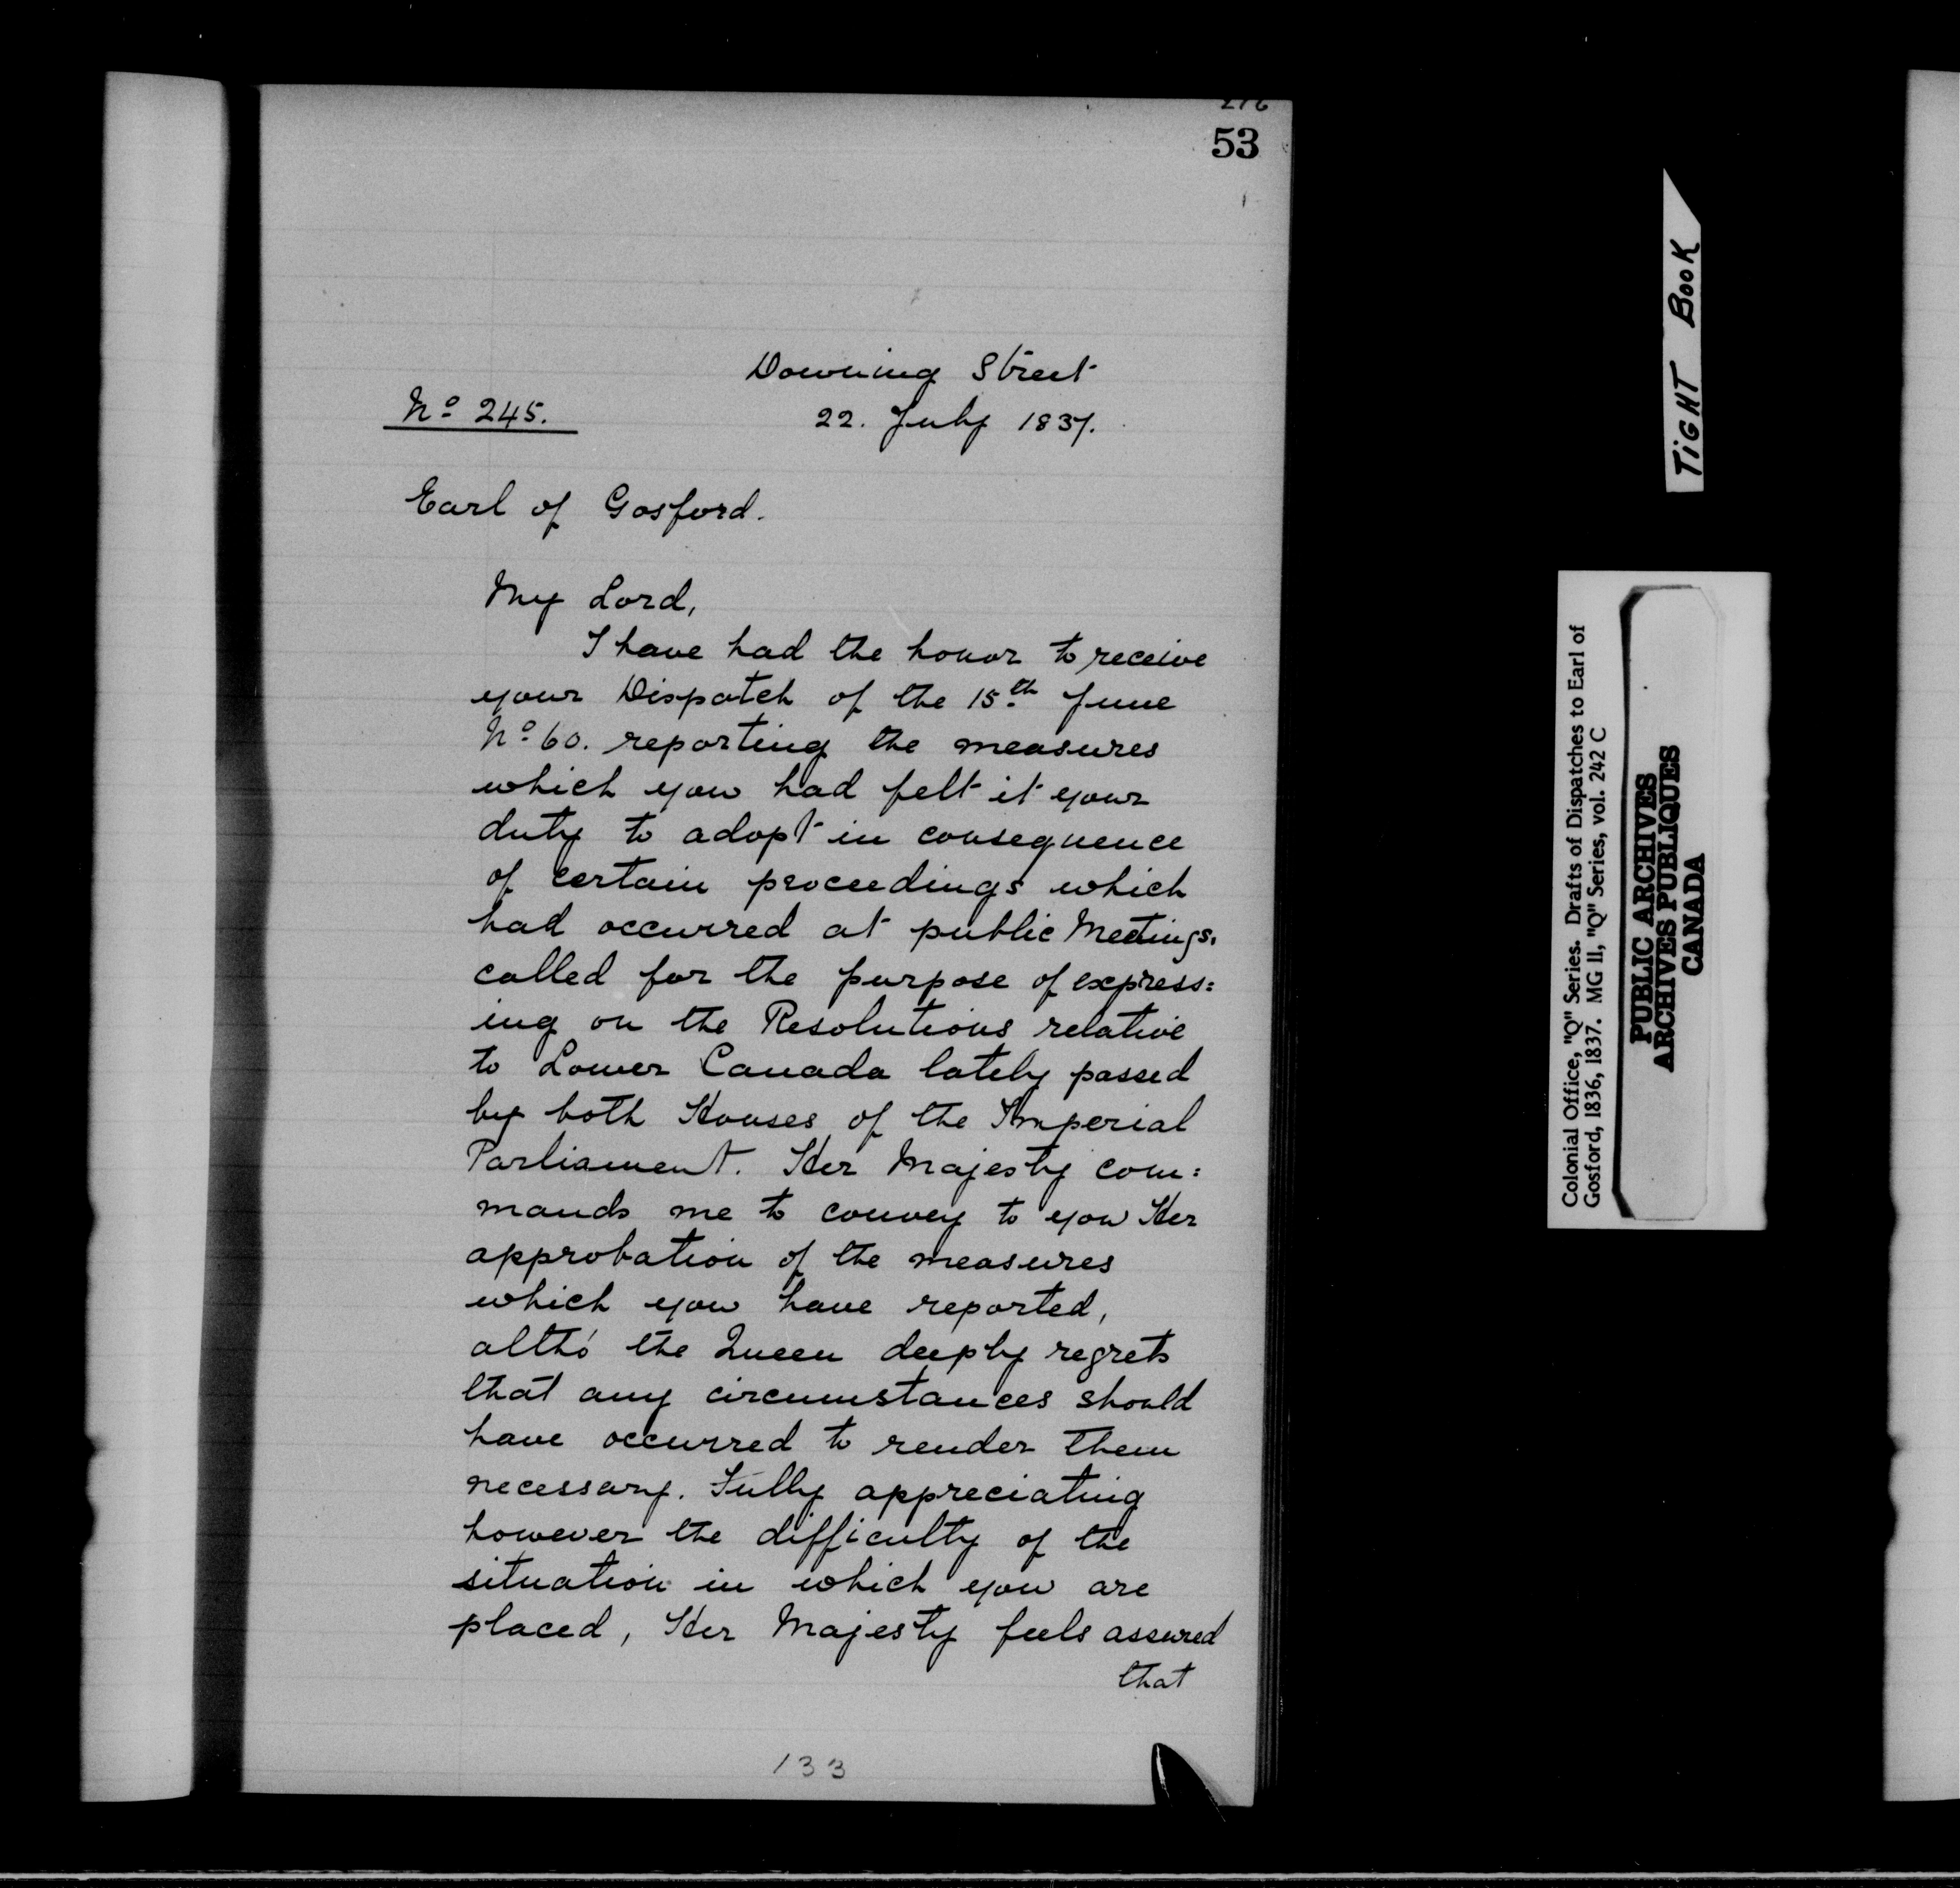 53
Downing Street
No 245.
22. July 1837.
Earl of Gosford.
My Lord,
I have had the honor to receive
your Dispatch of the 15th June
No 60. reporting the measures
which you had felt it your
duty to adopt in consequence
of certain proceedings which
had occurred at public Meetings,
called for the purpose of express=
ing on the Resolutions relative
to Lower Canada lately passed
by both Houses of the Imperial
Parliament. Her Majesty com=
mands me to convey to you Her
approbation of the measures
which you have reported,
altho' the Queen deeply regrets
that any circumstances should
have occurred to render them
necessary. Fully appreciating
however the difficulty of the
situation in which you are
placed, Her Majesty feels assured
that
133
TIGHT BOOK
Colonial Office, "Q" Series. Drafts of Dispatches to Earl of
Gosford, 1836, 1837. MG 11, "Q" Series, vol. 242 C
PUBLIC ARCHIVES
ARCHIVES PUBLIQUES
CANADA